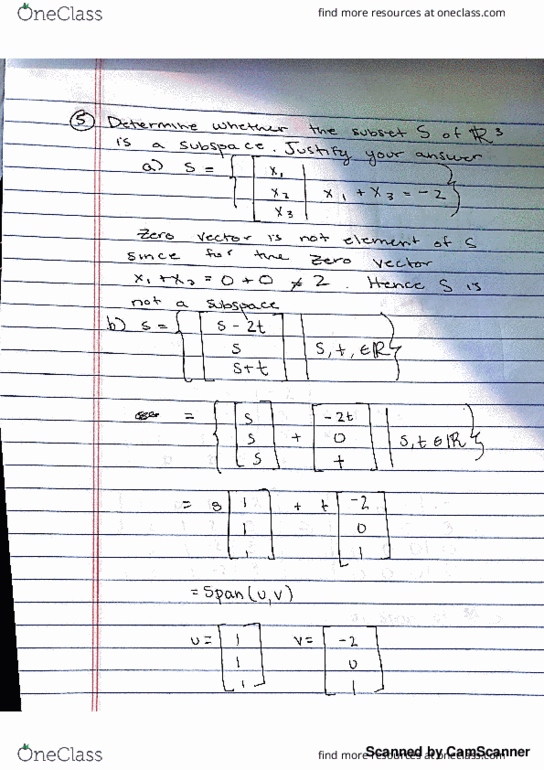 OneClass
find more resources at oneclass.com
⑤ Determine whether the subset S of ℝ³
is a subspace. Justify your answer
a) S = { [x₁ x₂ x₃] | x₁ + x₃ = -2 }
Zero vector is not element of S
since for the zero vector
x₁ + x₃ = 0 + 0 ≠ 2. Hence S is
not a subspace
b) S = { [s - 2t, s, s+t] | s, t, ∈ ℝ }
= { [s s s] + [-2t 0 t] | s, t ∈ ℝ }
= s [1 1 1] + t [-2 0 1]
= Span (u, v)
u = [1 1 1] v = [-2 0 1]
OneClass
find more resources at oneclass.com
Scanned by CamScanner